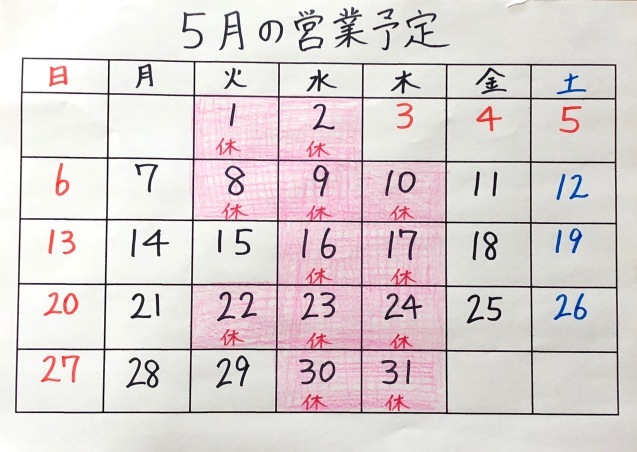 5月の営業予定
日 月 火 水 木 金 土
1 2 3 4 5
休 休
6 7 8 9 10 11 12
休 休 休
13 14 15 16 17 18 19
休 休
20 21 22 23 24 25 26
休 休 休
27 28 29 30 31
休 休